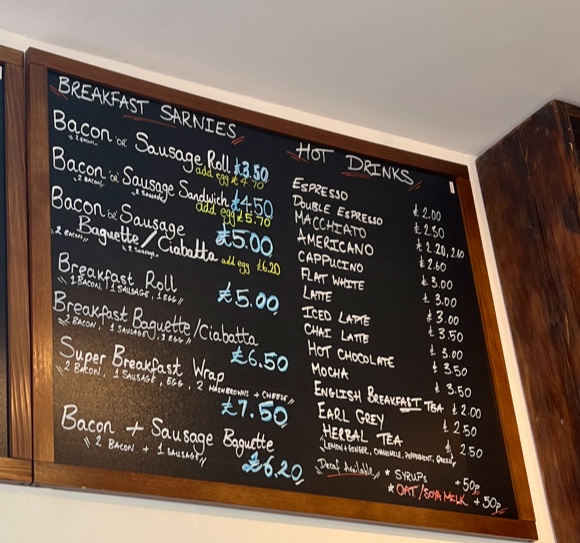 BREAKFAST SARNIES
Bacon or Sausage Roll £3.50
"2 BACON"
add egg £4.70
Bacon or Sausage Sandwich £4.50
"2 BACON" "2 SAUSAGE"
add egg £5.70
Bacon or Sausage
Baguette/Ciabatta £5.00
"2 BACON" "2 Sausage" add egg £6.20
Breakfast Roll
"1 BACON, 1 SAUSAGE, 1 EGG" £5.00
Breakfast Baguette/Ciabatta
"2 BACON, 1 SAUSAGE, 2 EGG" £6.50
Super Breakfast Wrap
"2 BACON, 1 SAUSAGE, EGG, 2 HASHBROWNS + CHEESE"
£7.50
Bacon + Sausage Baguette
"2 BACON + 1 SAUSAGE" £6.20
HOT DRINKS
ESPRESSO £2.00
DOUBLE ESPRESSO £2.50
MACCHIATO £2.20, 2.40
AMERICANO £2.60
CAPPUCINO £3.00
FLAT WHITE £3.00
LATTE £3.00
ICED LATTE £3.50
CHAI LATTE £3.00
HOT CHOCOLATE £3.50
MOCHA £3.50
ENGLISH BREAKFAST TEA £2.00
EARL GREY £2.50
HERBAL TEA £2.50
"LEMON + GINGER, CHAMOMILE, PEPPERMINT, GREEN"
"Decaf Available" * SYRUPS +50p
* OAT/SOYA MILK +50p